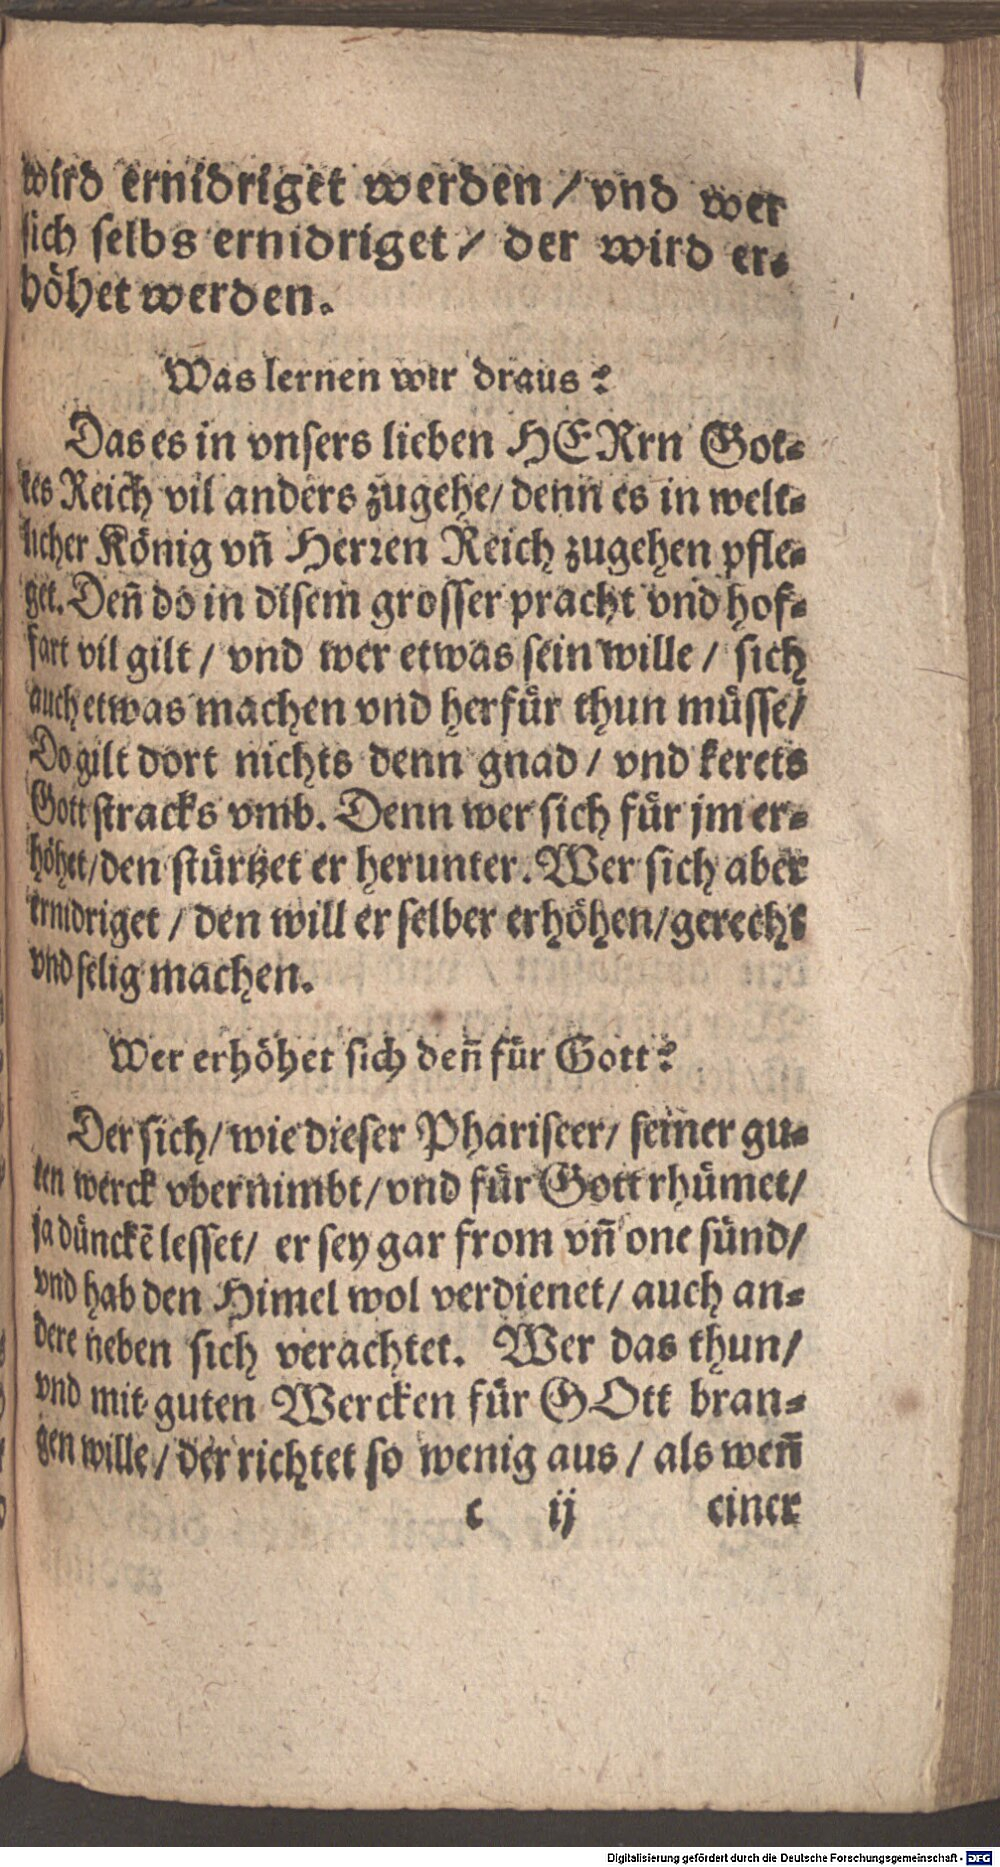 wird ernidriget werden / vnd wer
sich selbs ernidriget / der wird er-
höhet werden.
Was lernen wir draus?
Das es in vnsers lieben HERrn Got-
tes Reich vil anders zugehe / denn es in welt-
licher König vn̄ Herren Reich zugehen pfle-
get. Den̄ do in disem grosser pracht vnd hof-
fart vil gilt / vnd wer etwas sein wille / sich
auch etwas machen vnd herfür thun müsse /
Do gilt dort nichts denn gnad / vnd kerets
Gott stracks vmb. Denn wer sich für jm er-
höhet / den stürtzet er herunter. Wer sich aber
ernidriget / den will er selber erhöhen / gerecht
vnd selig machen.
Wer erhöhet sich den̄ für Gott?
Der sich / wie dieser Phariseer / seiner gu-
ten werck vbernimbt / vnd für Gott rhümet /
ja dünckē lesset / er sey gar from vn̄ one sünd /
vnd hab den Himel wol verdienet / auch an-
dere neben sich verachtet. Wer das thun /
vnd mit guten Wercken für GOtt bran-
gen wille / der richtet so wenig aus / als wen̄
c ij einer
Digitalisierung gefördert durch die Deutsche Forschungsgemeinschaft - DFG